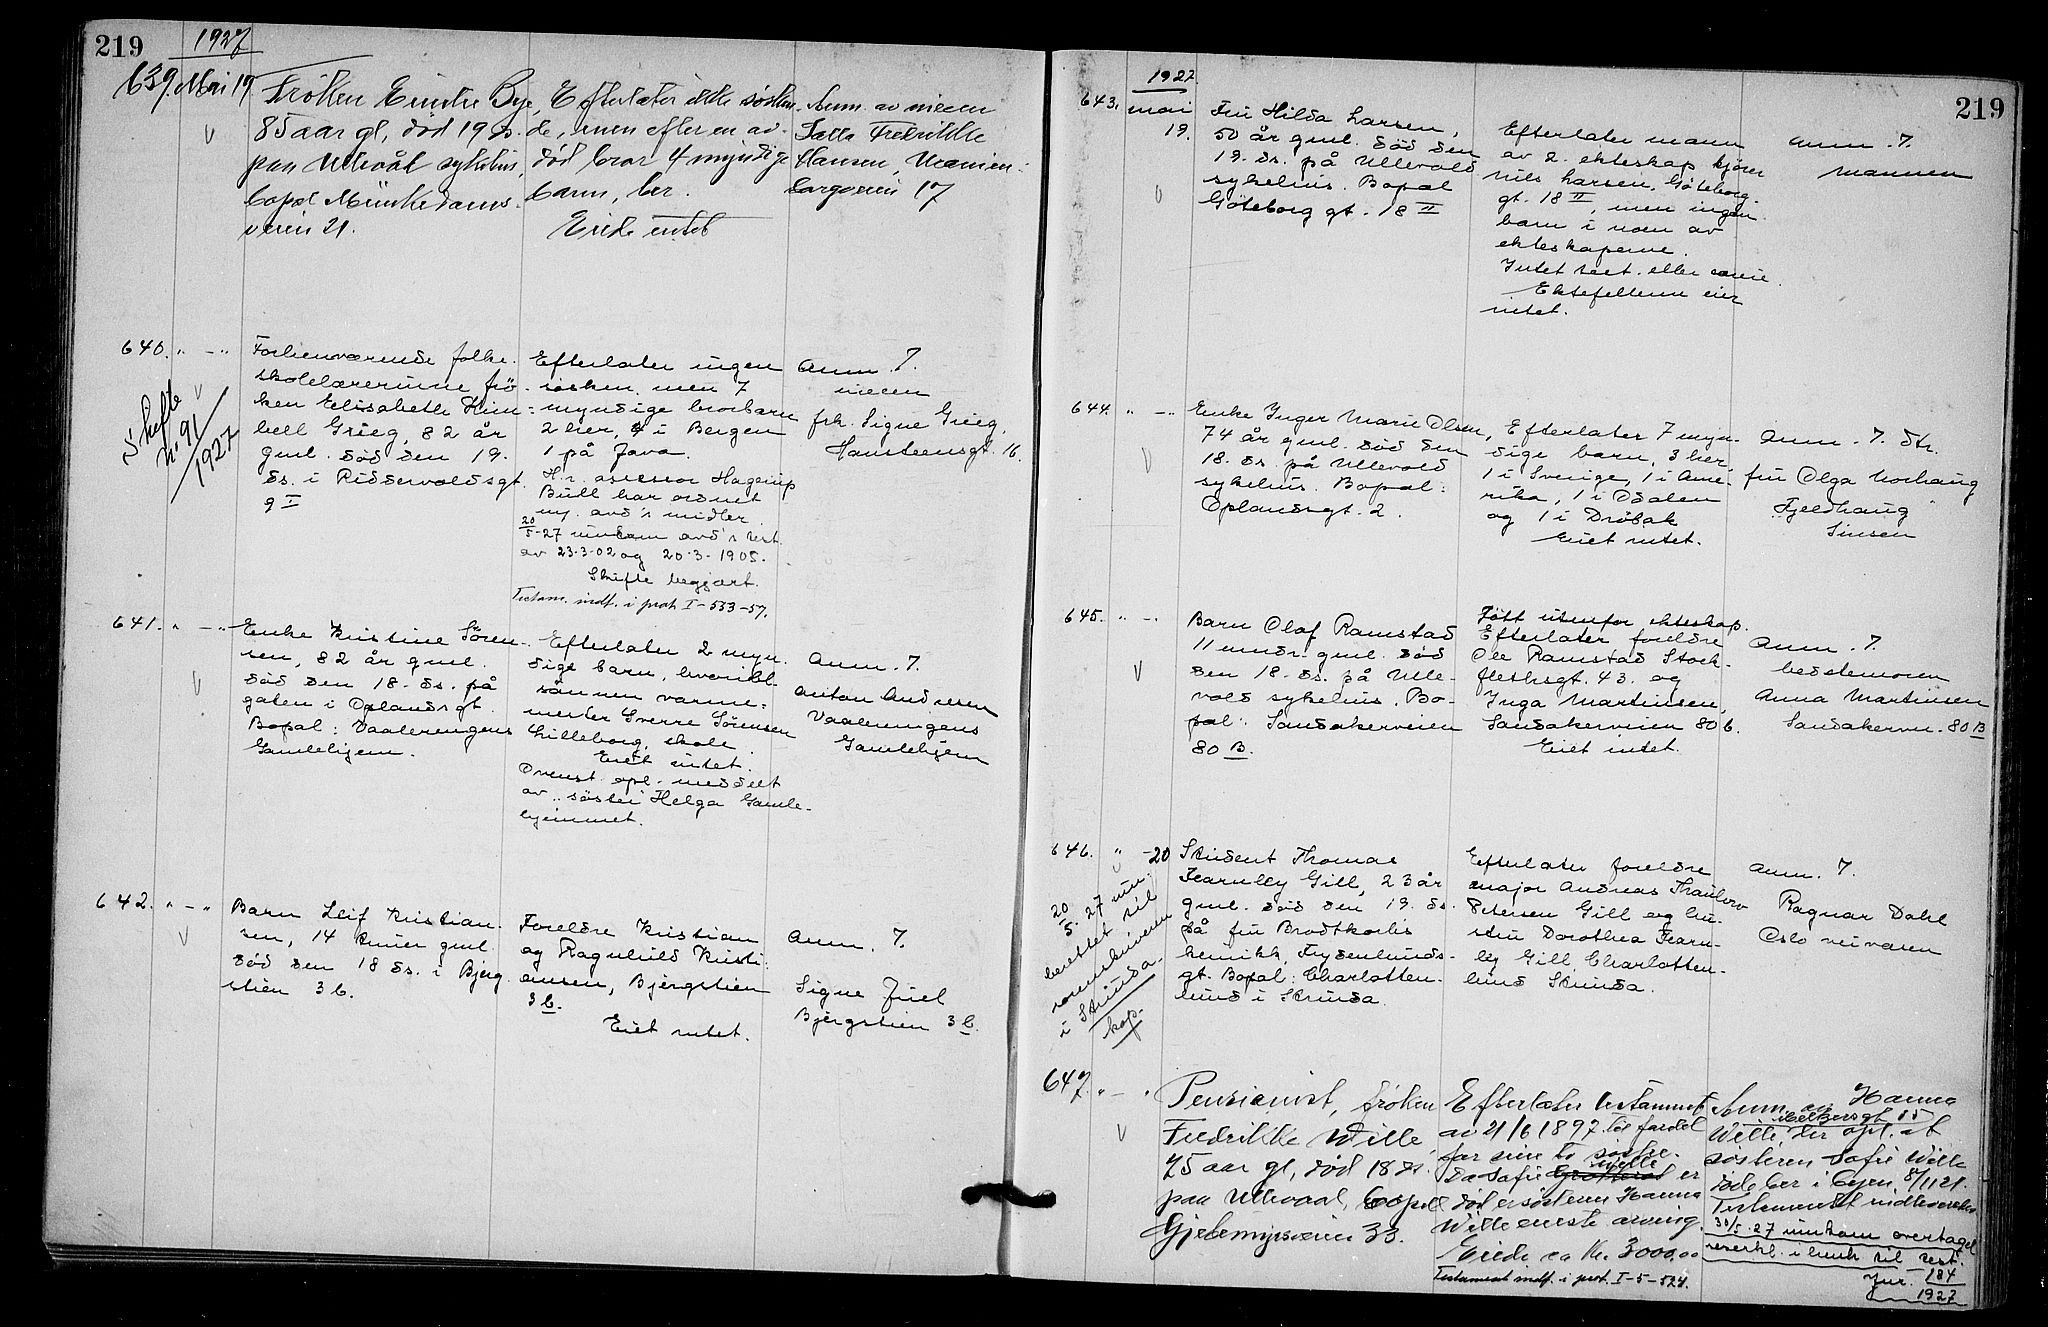 219
1927
639. Mai 19
Frøken Emilie Bye,
85 aar gl, død 19 ds.
paa Ullevål sykehus,
bopæl Munkedams-
veien 21.
Efterlater ikke søsken-
de, men efter en av-
død bror 4 myndige
barn, her.
Eiede intet
Anm. av niecen
Fredrikke
Hansen, Uranien-
borgveien 17
640. " — "
Skifte
nr 91/1927
Forhenværende folke-
skolelærerinne frø-
ken Elisabeth Kim-
bell Grieg, 82 år
gml. død den 19.
ds. i Riddervoldsgt.
9 I
Efterlater ingen
søsken, men 7
myndige brorbarn
2 her, 4 i Bergen
1 på Java.
H.r. assessor Hagerup
Bull har ordnet
m. avd's midler.
20/5-27 innkom avd's test.
av 23-3-02 og 20-3-1905.
Skifte begjært.
Testam. indf. i prot I-533-57.
Anm. 7.
niecen
frk. Signe Grieg,
Hansteensgt. 16.
641. " — "
Enke Kristine Sören-
sen, 82 år gml.
död den 18. ds. på
gaten i Oplandsgt.
Bopal: Vaalerengens
Gamlehjem.
Efterlater 2 myn-
dige barn, hvoribl.
sönnen varme-
mester Sverre Sörensen
Lilleborg skole.
Eiet intet.
Ovenst. opl. meddelt
av "söster" Helga Gamle-
hjemmet.
Anm. 7.
Anton Andresen
Vaalerengens
Gamlehjem
642. " — "
Barn Leif Kristian-
sen, 14 timer gml.
död den 18 ds. i Bjerg-
stien 3 b.
Foreldre Kristian
og Ragnhild Kristi-
ansen, Bjergstien
3 b.
Eiet intet.
Anm. 7.
Signe Juel
Bjergstien 3 b.
219
1927
643. mai
19.
Fru Hilda Larsen,
50 år gml. död den
19. ds. på Ullevold
sykehus. Bopal
Göteborg gt. 18 II
Efterlater mann
av 2. ekteskap kjörer
Nils Larsen, Göteborg-
gt. 18 II, men ingen
barn i noen av
ekteskapene.
Intet test. eller
Ektefellene eier
intet.
Anm. 7.
mannen
644. " — "
Enke Inger Marie Olsen,
74 år gml. död den
18. ds. på Ullevold
sykehus. Bopal:
Oplandsgt. 2.
Efterlater 7 myn-
dige barn, 3 her.
1 i Sverige, 1 i Ame-
rika, 1 i Odalen
og 1 i Dröbak
Eiet intet.
Anm. 7. dtr.
fru Olga Norhaug
Fjeldhaug
Sinsen
645. " — "
Barn Olaf Ramstad
11 mndr. gml. död
den 18. ds. på Ulle-
vold sykehus. Bo-
pal: Sandakerveien
80 B.
Född utenfor ekteskap.
Efterlater foreldre
Ole Ramstad Stock-
flethsgt. 43. og
Inga Martinsen,
Sandakerveien 80 b.
Eiet intet.
Anm. 7.
bestemoren
Anna Martinsen
Sandakervn. 80 B
646. " - 20
20/5-27 inn-
berettet til
sorenskriveren
i Strinda.
kop.
Student Thomas
Fearnley Gill, 23 år
gml. död den 19. ds.
på fru Brodtkorbs
kenikk, Frydenlunds-
gt. Bopal: Charlotten-
lund i Strinda.
Efterlater foreldre
major Andreas Thaulow
Petersen Gill og hu-
stru Dorothea Fearn-
ley Gill Charlotten-
lund Strinda.
Anm. 7.
Ragnar Dahl
Oslo veivesen
647. " — "
Pensionist, frøken
Fredrikke Wille
75 aar gl, død 18 ds.
paa Ullevaal, bopæl
Gjetemyrsveien 33.
Efterlater testament
av 21/6 1897 til fordel
for sine to søstre.
Da Sofie Wille er
død er søsteren Hanna
Wille eneste arving.
Eiede ca Kr. 3000,00
Testament indf. i prot. I-5-524.
Anm. av Hanna
15
Wille, der opl. at
søsteren Sofie Wille
døde her i byen 8/11 21.
Testamentet
30/5-27 innkom overtagel
seserkl. i henh. til test.
Jnr. 184
1927